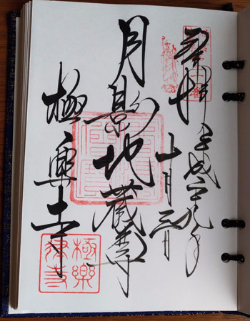 奉拝 平成二十九年
十月三日
月影地蔵尊
極楽寺
極樂律寺